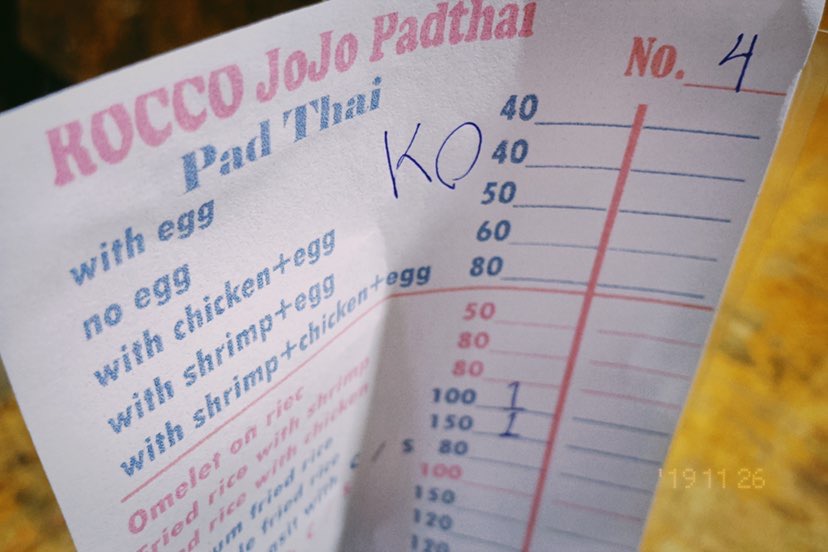 ROCCO JoJo Padthai
No. 4
Pad Thai
KO
with egg 40
no egg 40
with chicken+egg 50
with shrimp+egg 60
with shrimp+chicken+egg 80
Omelet on riec 50
Fried rice with shrimp 80
rice with chicken 80
fried rice 100 1
fried rice 150 1
with 80
100
150
120
120
'19 11 26